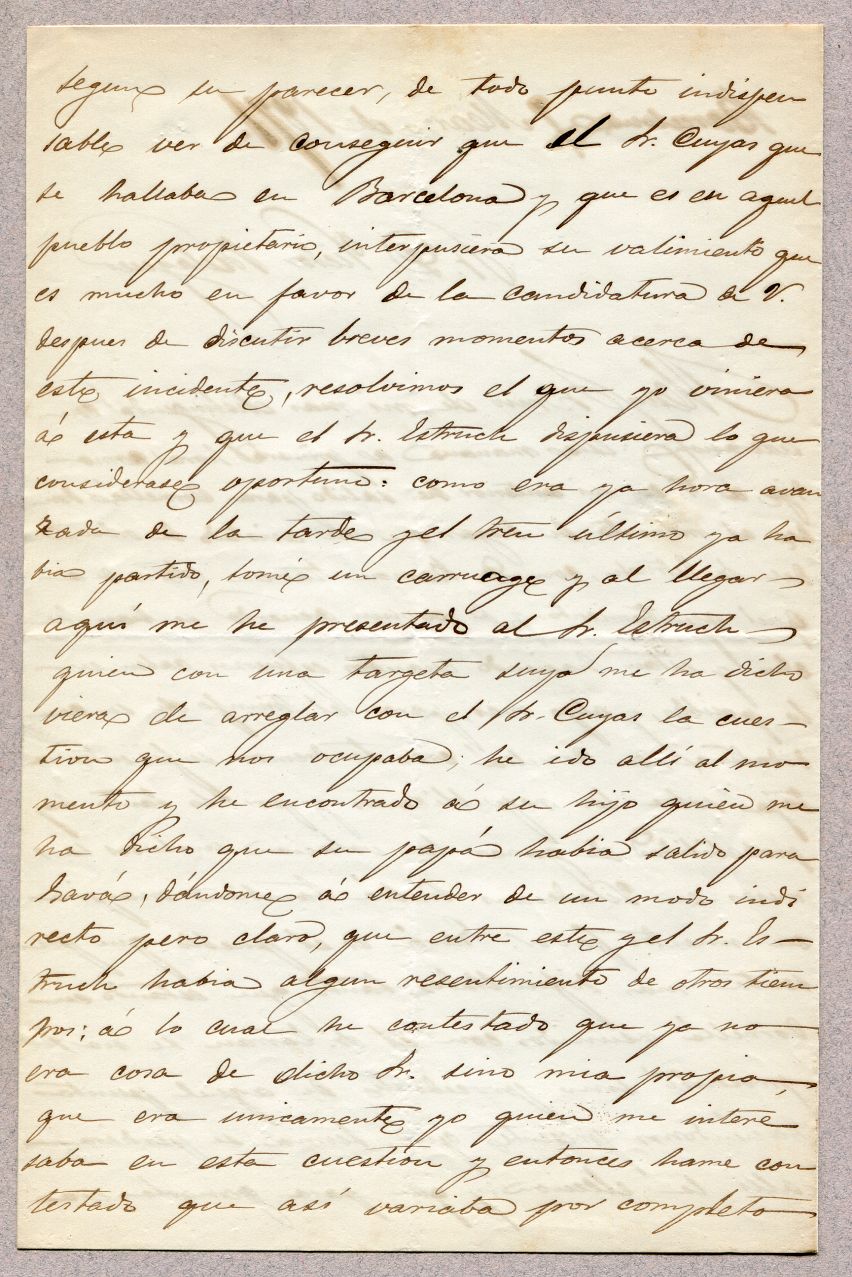 segun su parecer, de todo punto indispen
sable ver de conseguir que el Sr. Cuyas que
se hallaba en Barcelona y que es en aquel
pueblo propietario, interpusiera su valimiento que
es mucho en favor de la candidatura de V.
despues de discutir breves momentos acerca de
este incidente, resolvimos el que yo viniera
á esta y que el Sr. Estruch dispusiera lo que
considerase oportuno: como era ya hora avan
zada de la tarde y el tren último ya ha
bia partido, tomé un carruage y al llegar
aquí me he presentado al Sr. Estruch
quien con una targeta suya me ha dicho
viera de arreglar con el Sr. Cuyas la cues-
tion que nos ocupaba; he ido allí al mo
mento y he encontrado á su hijo quien me
ha dicho que su papá habia salido para
Gavá, dándome á entender de un modo indi
recto pero claro, que entre este y el Sr. Es-
truch habia algun resentimiento de otros tiem
pos; á lo cual he contestado que ya no
era cosa de dicho Sr. sino mia propia,
que era unicamente yo quien me intere
saba en esta cuestion y entonces hame con
testado que así variaba por completo